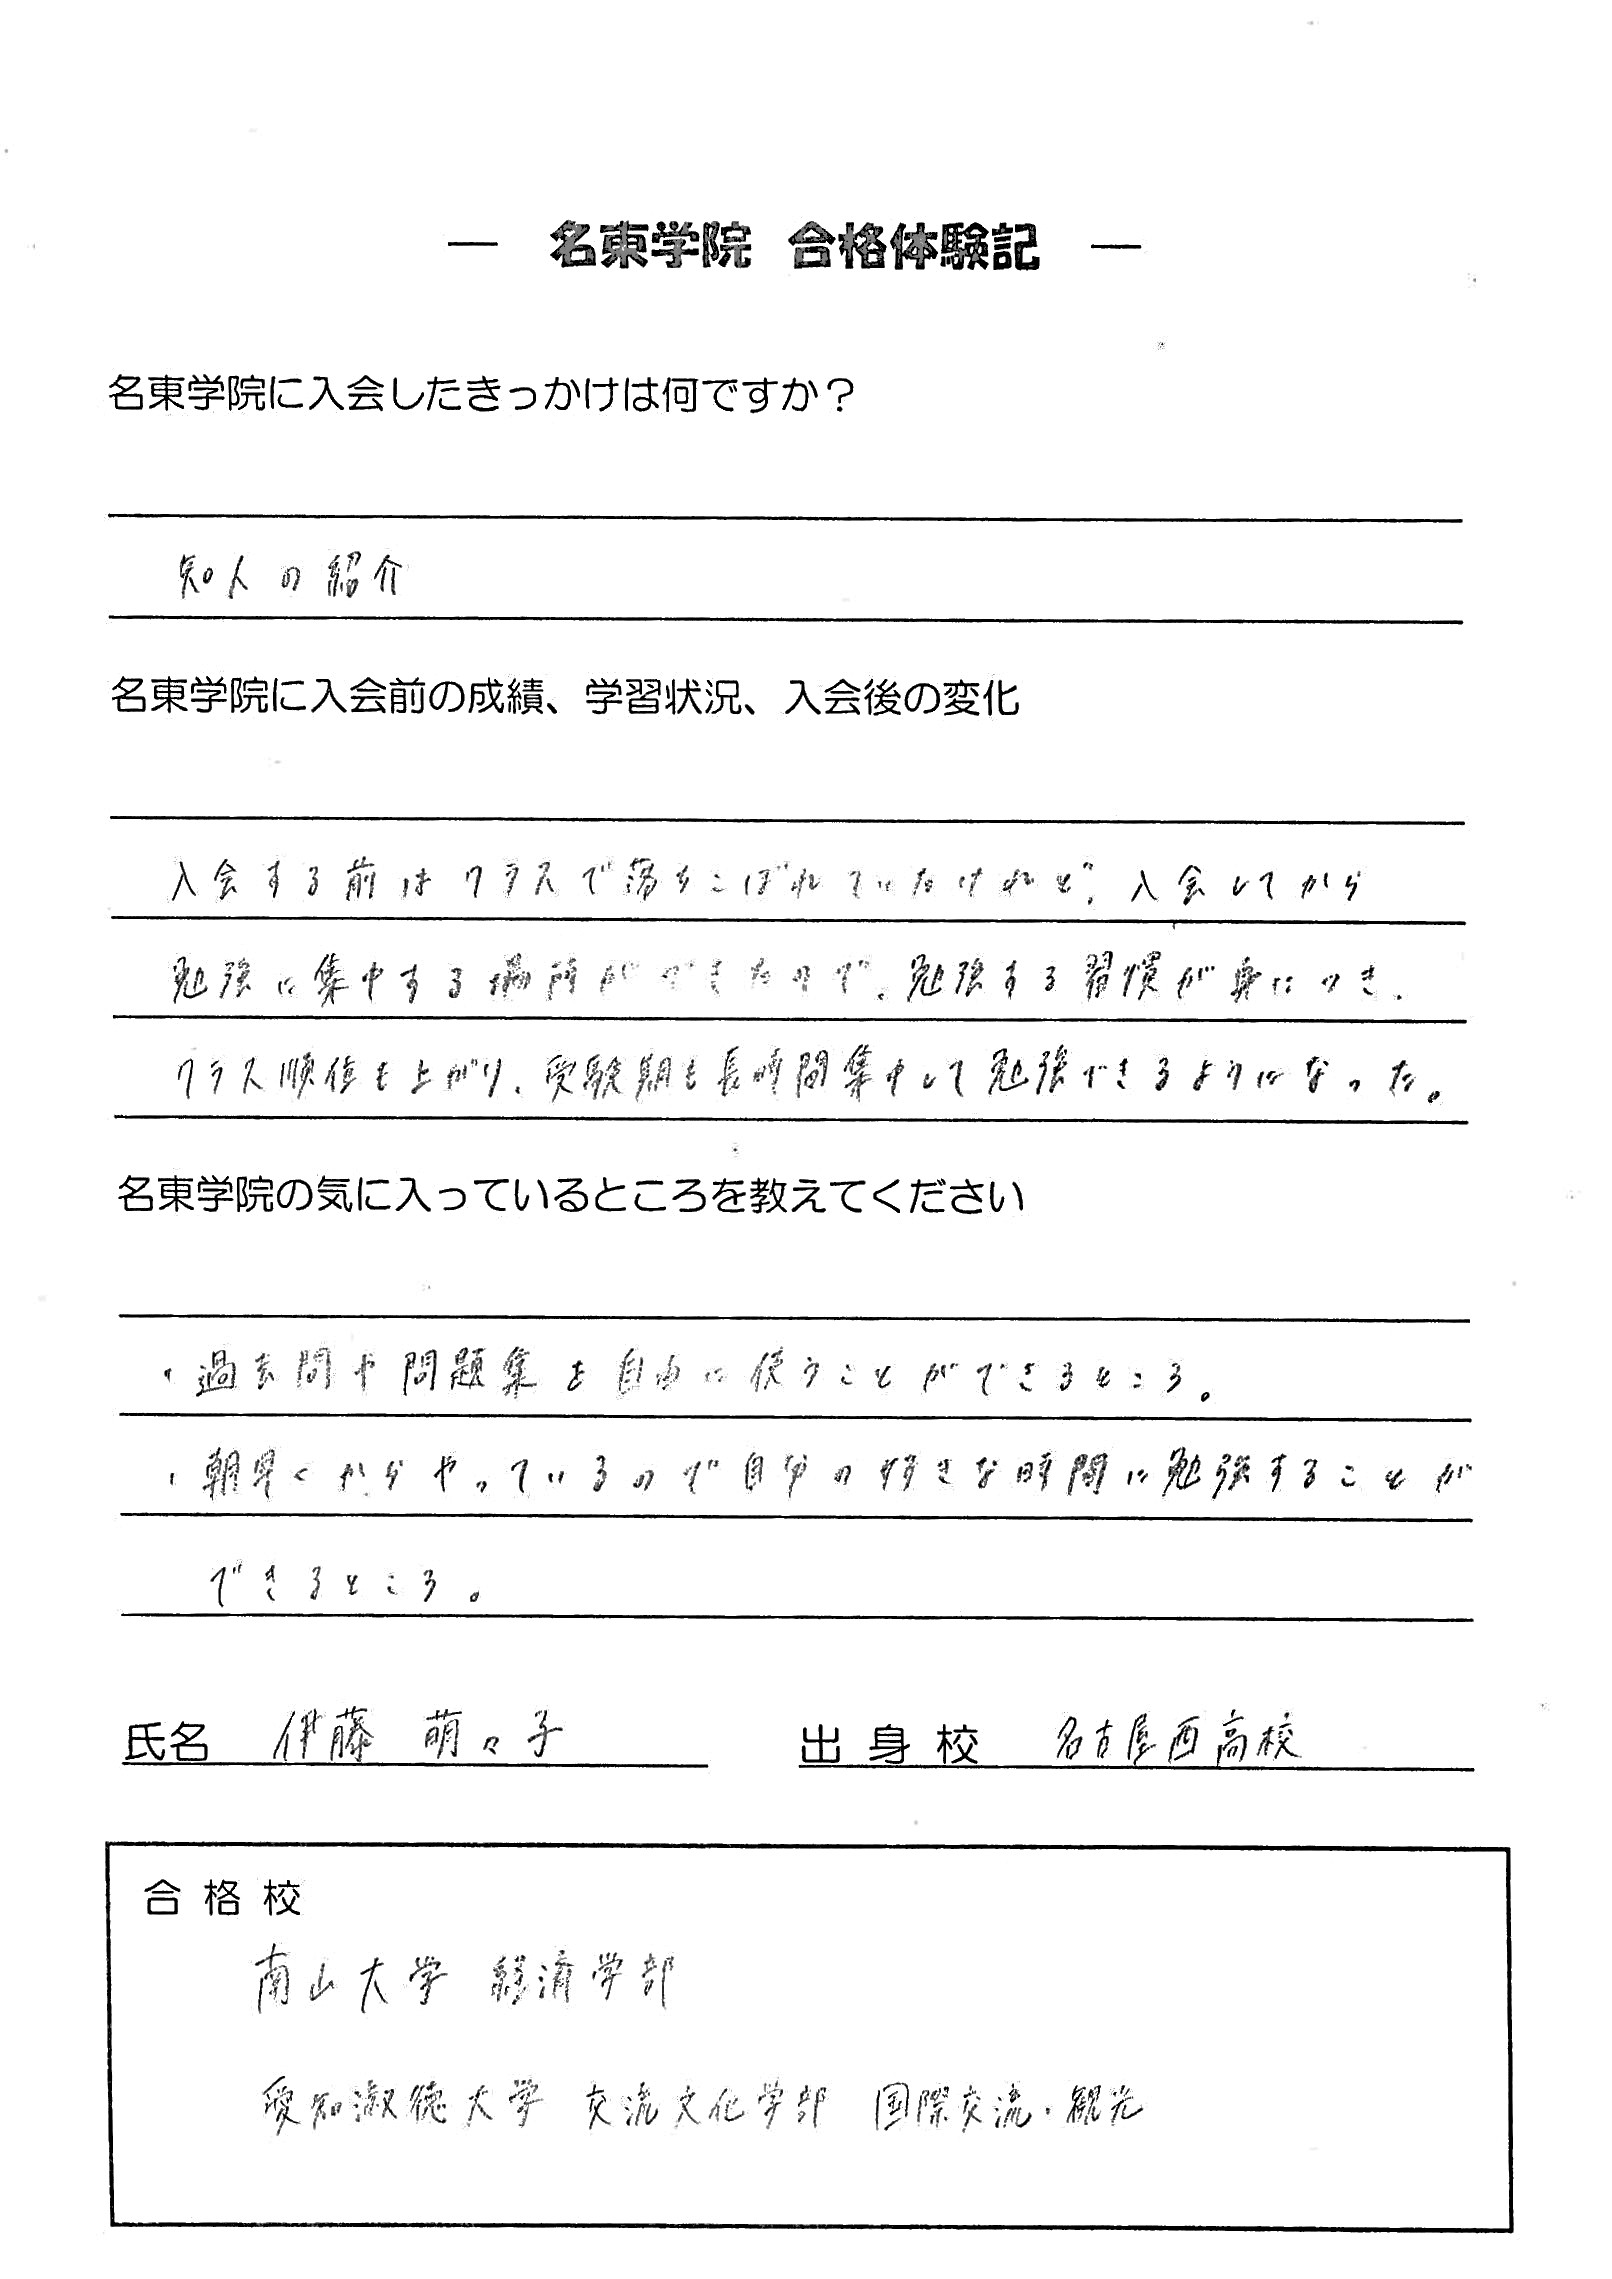 ― 名東学院 合格体験記 ―
名東学院に入会したきっかけは何ですか？
知人の紹介
名東学院に入会前の成績、学習状況、入会後の変化
入会する前はクラスで落ちこぼれていたけれど、入会してから
勉強に集中する場所ができたので、勉強する習慣が身につき、
クラス順位も上がり、受験期も長時間集中して勉強できるようになった。
名東学院の気に入っているところを教えてください
・過去問や問題集を自由に使うことができるところ。
・朝早くからやっているので自分の好きな時間に勉強することが
できるところ。
氏名 伊藤 萌々子 出身校 名古屋西高校
合格校
南山大学 経済学部
愛知淑徳大学 交流文化学部 国際交流・観光